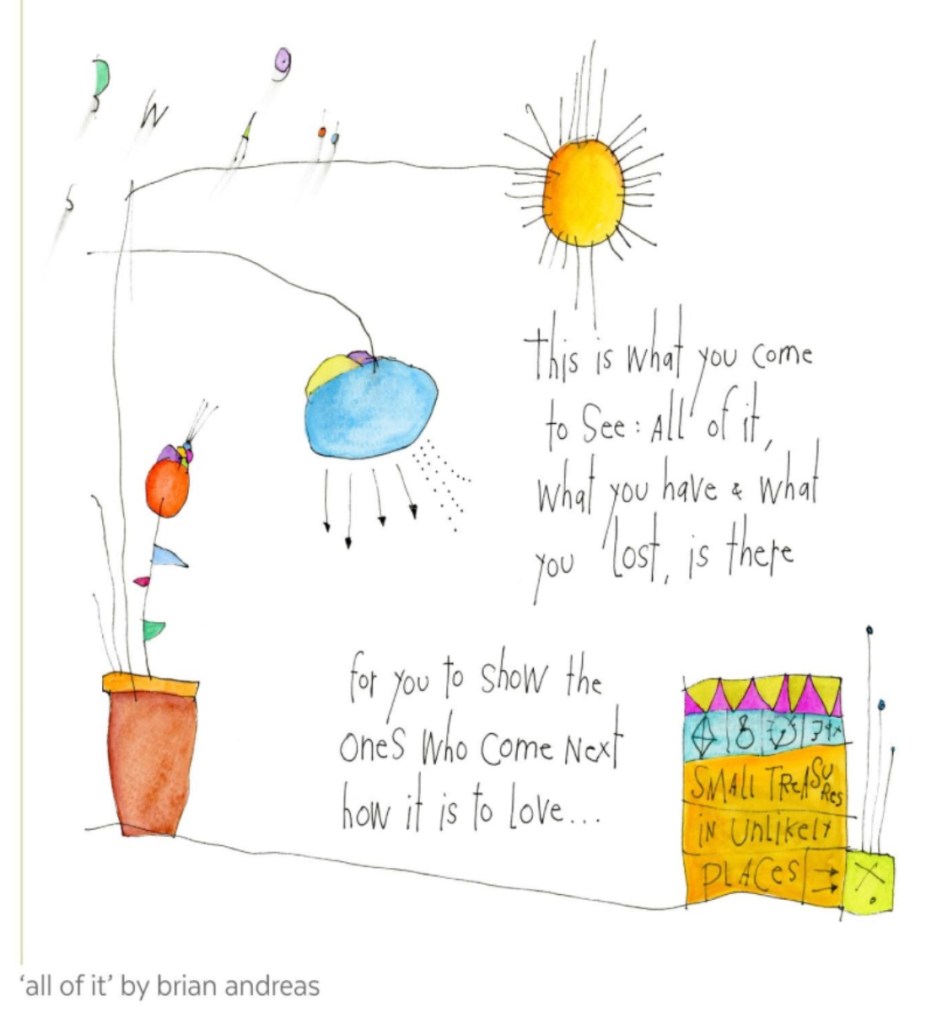 This is what you come
to See: All of it,
what you have & what
you lost, is there
for you to show the
ones who come next
how it is to love...
SMALL TREASURES
in UnlikelY
PLACES
'all of it' by brian andreas